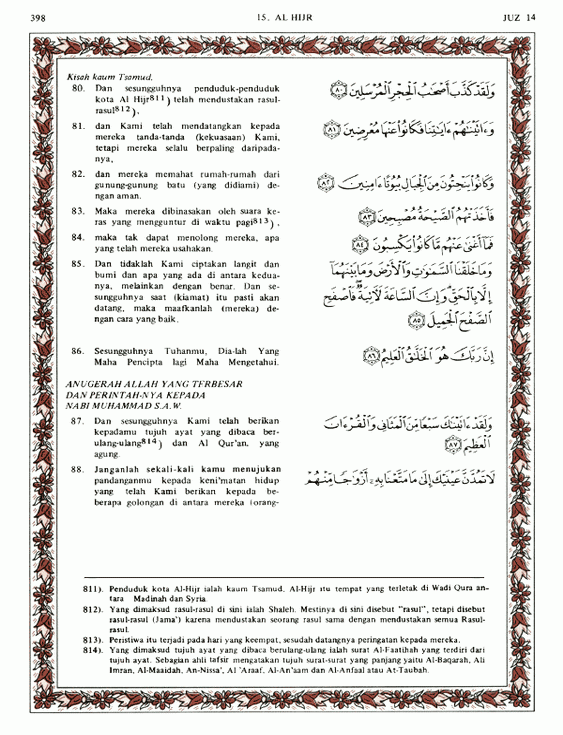 398
15. AL HIJR
JUZ 14
Kisah kaum Tsamud.
80. Dan sesungguhnya penduduk-penduduk
kota Al Hijr811) telah mendustakan rasul-
rasul812),
وَلَقَدْ كَذَّبَ أَصْحَٰبُ ٱلْحِجْرِ ٱلْمُرْسَلِينَ ٨٠
81. dan Kami telah mendatangkan kepada
mereka tanda-tanda (kekuasaan) Kami,
tetapi mereka selalu berpaling daripada-
nya,
وَءَاتَيْنَٰهُمْ ءَايَٰتِنَا فَكَانُوا۟ عَنْهَا مُعْرِضِينَ ٨١
82. dan mereka memahat rumah-rumah dari
gunung-gunung batu (yang didiami) de-
ngan aman.
وَكَانُوا۟ يَنْحِتُونَ مِنَ ٱلْجِبَالِ بُيُوتًا ءَامِنِينَ ٨٢
83. Maka mereka dibinasakan oleh suara ke-
ras yang mengguntur di waktu pagi813),
فَأَخَذَتْهُمُ ٱلصَّيْحَةُ مُصْبِحِينَ ٨٣
84. maka tak dapat menolong mereka, apa
yang telah mereka usahakan.
فَمَآ أَغْنَىٰ عَنْهُم مَّا كَانُوا۟ يَكْسِبُونَ ٨٤
85. Dan tidaklah Kami ciptakan langit dan
bumi dan apa yang ada di antara kedua-
nya, melainkan dengan benar. Dan se-
sungguhnya saat (kiamat) itu pasti akan
datang, maka maafkanlah (mereka) de-
ngan cara yang baik.
وَمَا خَلَقْنَا ٱلسَّمَٰوَٰتِ وَٱلْأَرْضَ وَمَا بَيْنَهُمَآ
إِلَّا بِٱلْحَقِّ وَإِنَّ ٱلسَّاعَةَ لَءَاتِيَةٌ فَٱصْفَحِ
ٱلصَّفْحَ ٱلْجَمِيلَ ٨٥
86. Sesungguhnya Tuhanmu, Dia-lah Yang
Maha Pencipta lagi Maha Mengetahui.
إِنَّ رَبَّكَ هُوَ ٱلْخَلَّٰقُ ٱلْعَلِيمُ ٨٦
ANUGERAH ALLAH YANG TERBESAR
DAN PERINTAH-NYA KEPADA
NABI MUHAMMAD S.A.W.
87. Dan sesungguhnya Kami telah berikan
kepadamu tujuh ayat yang dibaca ber-
ulang-ulang814) dan Al Qur'an, yang
agung.
وَلَقَدْ ءَاتَيْنَٰكَ سَبْعًا مِّنَ ٱلْمَثَانِى وَٱلْقُرْءَانَ
ٱلْعَظِيمَ ٨٧
88. Janganlah sekali-kali kamu menujukan
pandanganmu kepada keni'matan hidup
yang telah Kami berikan kepada be-
berapa golongan di antara mereka (orang-
لَا تَمُدَّنَّ عَيْنَيْكَ إِلَىٰ مَا مَتَّعْنَا بِهِۦٓ أَزْوَٰجًا مِّنْهُمْ
811). Penduduk kota Al-Hijr ialah kaum Tsamud. Al-Hijr itu tempat yang terletak di Wadi Qura an-
tara Madinah dan Syria.
812). Yang dimaksud rasul-rasul di sini ialah Shaleh. Mestinya di sini disebut "rasul", tetapi disebut
rasul-rasul (Jama') karena mendustakan seorang rasul sama dengan mendustakan semua Rasul-
rasul.
813). Peristiwa itu terjadi pada hari yang keempat, sesudah datangnya peringatan kepada mereka.
814). Yang dimaksud tujuh ayat yang dibaca berulang-ulang ialah surat Al-Faatihah yang terdiri dari
tujuh ayat. Sebagian ahli tafsir mengatakan tujuh surat-surat yang panjang yaitu Al-Baqarah, Ali
Imran, Al-Maaidah, An-Nissa', Al 'Araaf, Al-An'aam dan Al-Anfaal atau At-Taubah.